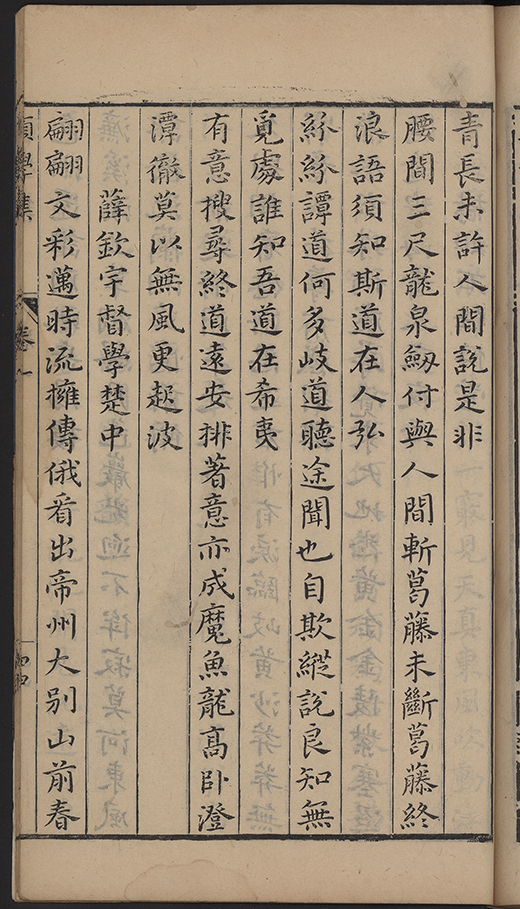 青長未許人間說是非
腰間三尺龍泉劔付與人間斬葛藤未斷葛藤終
浪語須知斯道在人弘
紛紛譚道何多岐道聽途聞也自欺縱說良知無
覓處誰知吾道在希夷
有意搜尋終道遠安排著意亦成魔魚龍高臥澄
潭徹莫以無風更起波
薛欽宇督學楚中
翩翩文彩邁時流擁傳俄看出帝州大別山前春
學集
卷八